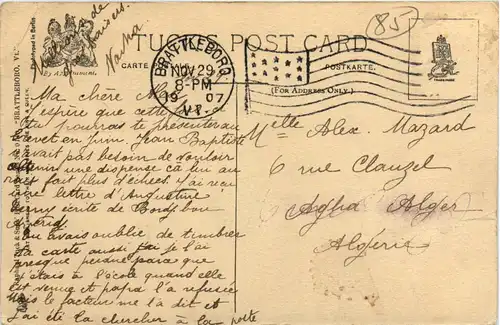 85
TUCK'S POST CARD
CARTE
POSTKARTE.
(FOR ADDRESS ONLY.)
BRATTLEBORO,
NOV 29
8-PM
1907
VT.
TRADE MARK
By Appointment.
"BRATTLEBORO, VT."
Ma chère
J'espère que cette
tu pourras te présenter au
brevet en Juin. Jean Baptiste
avait pas besoin de vouloir
une dispense cà lui au
rait fait plus d'études. J'ai reçu
une lettre d'Augustine
écrite de
Tu avais oublié de timbrer
ta carte aussi j'ai je l'ai
presque perdue parce que
j'étais à l'école quand elle
est venue et papa l'a refusée
Mais le facteur me l'a dit et
j'ai été la chercher à la poste
Melle Alex. Mazard
6 rue Clauzel
Agha Alger
Algérie